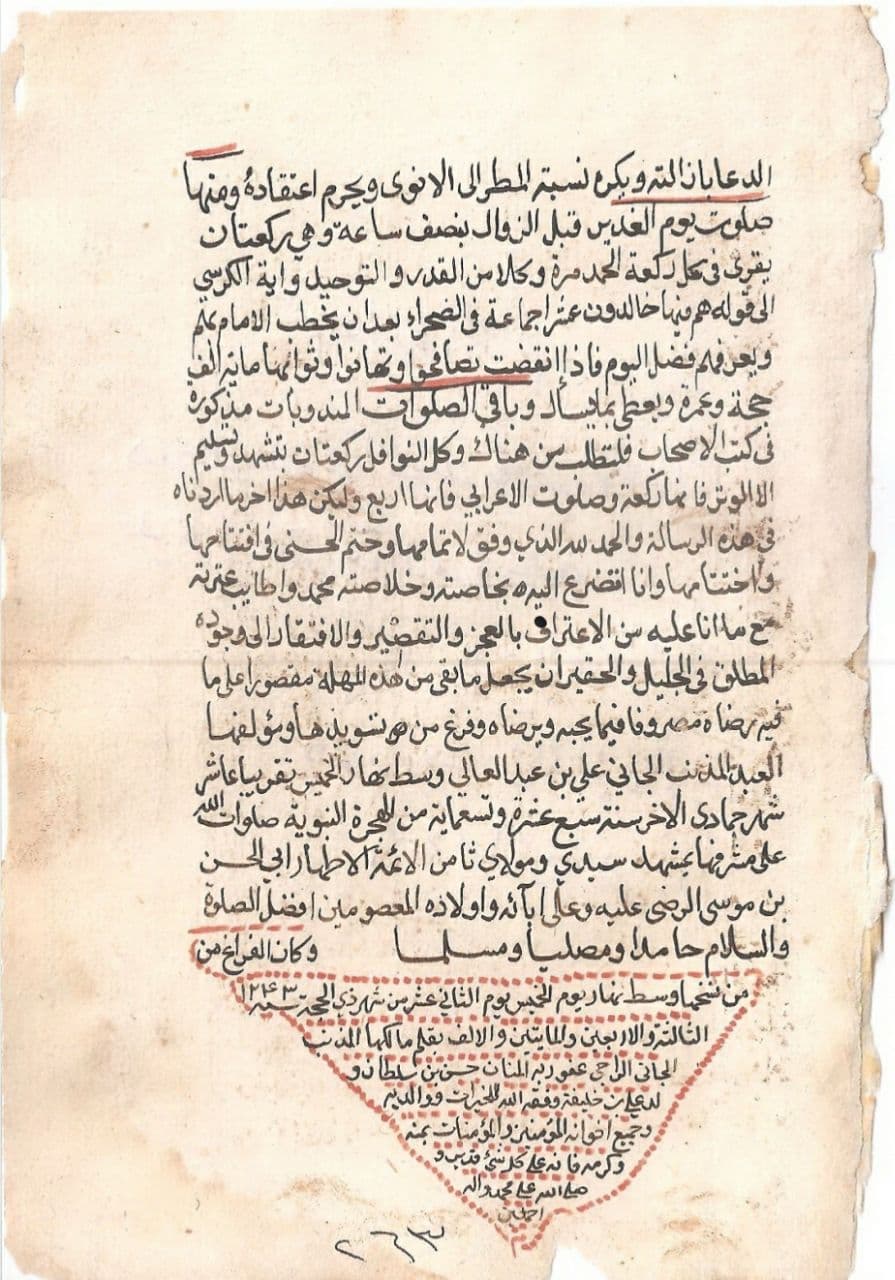 الدعا باذن الله ويكره نسبة المطر الى الانوى ويحرم اعتقاده ومنها
صلوت يوم الغدير قبل الزوال بنصف ساعة وهي ركعتان
يقرى في كل ركعة الحمد مرة وكلا من القدر والتوحيد واية الكرسي
الى قوله هم فيها خالدون عشرا جماعة في الصحراء بعد ان يخطب الامام بهم
ويعرفهم فضل اليوم فاذا انقضت تصافحوا وتهانوا وثوابها ماية الف
حجة وعمرة ويعطى ما يسال وباقي الصلوات المندوبات مذكورة
في كتب الاصحاب فلتطلب من هناك وكل النوافل ركعتان بتشهد وتسليم
الا الوتر فانها ركعة وصلوت الاعرابي فانها اربع وليكن هذا اخر ما اردناه
في هذه الرسالة والحمد لله الذي وفق لاتمامها وختم الحسنى في افتتاحها
واختتامها وانا اتضرع اليه بخاصته وخلاصته محمد واطايب عترته
مع ما انا عليه من الاعتراف بالعجز والتقصير والافتقار الى وجوده
المطلق في الجليل والحقير ان يجعل ما بقى من هذه المهلة مقصورا على ما
فيه رضاه مصروفا فيما يحبه ويرضاه وفرغ من تسويدها ومؤلفها
العبد المذنب الجاني علي بن عبد العالي وسط نهار الخميس تقريبا عاشر
شهر جمادى الاخر سنة سبع عشرة وتسعماية من الهجرة النبوية صلوات الله
على مشرفها بمشهد سيدي ومولاي ثامن الائمة الاطهار ابي الحسن
بن موسى الرضى عليه وعلى ابآئه واولاده المعصومين افضل الصلوة
والسلام حامدا ومصليا ومسلما وكان الفراغ من
من نسخها وسط نهار يوم الخميس يوم الثاني عشر من شهر ذي الحجة سنة ١٢٤٣
الثالثة والاربعين والمايتين والالف بقلم مالكها المذنب
الجاني الراجي عفو ربه المنان حسن بن سلطان و
لد علي بن خليفة وفقه الله للخيرات ووالديه
وجميع اخوانه المؤمنين والمؤمنات بمنه
وكرمه فانه على كل شئ قدير و
صلى الله على محمد واله
اجمعين